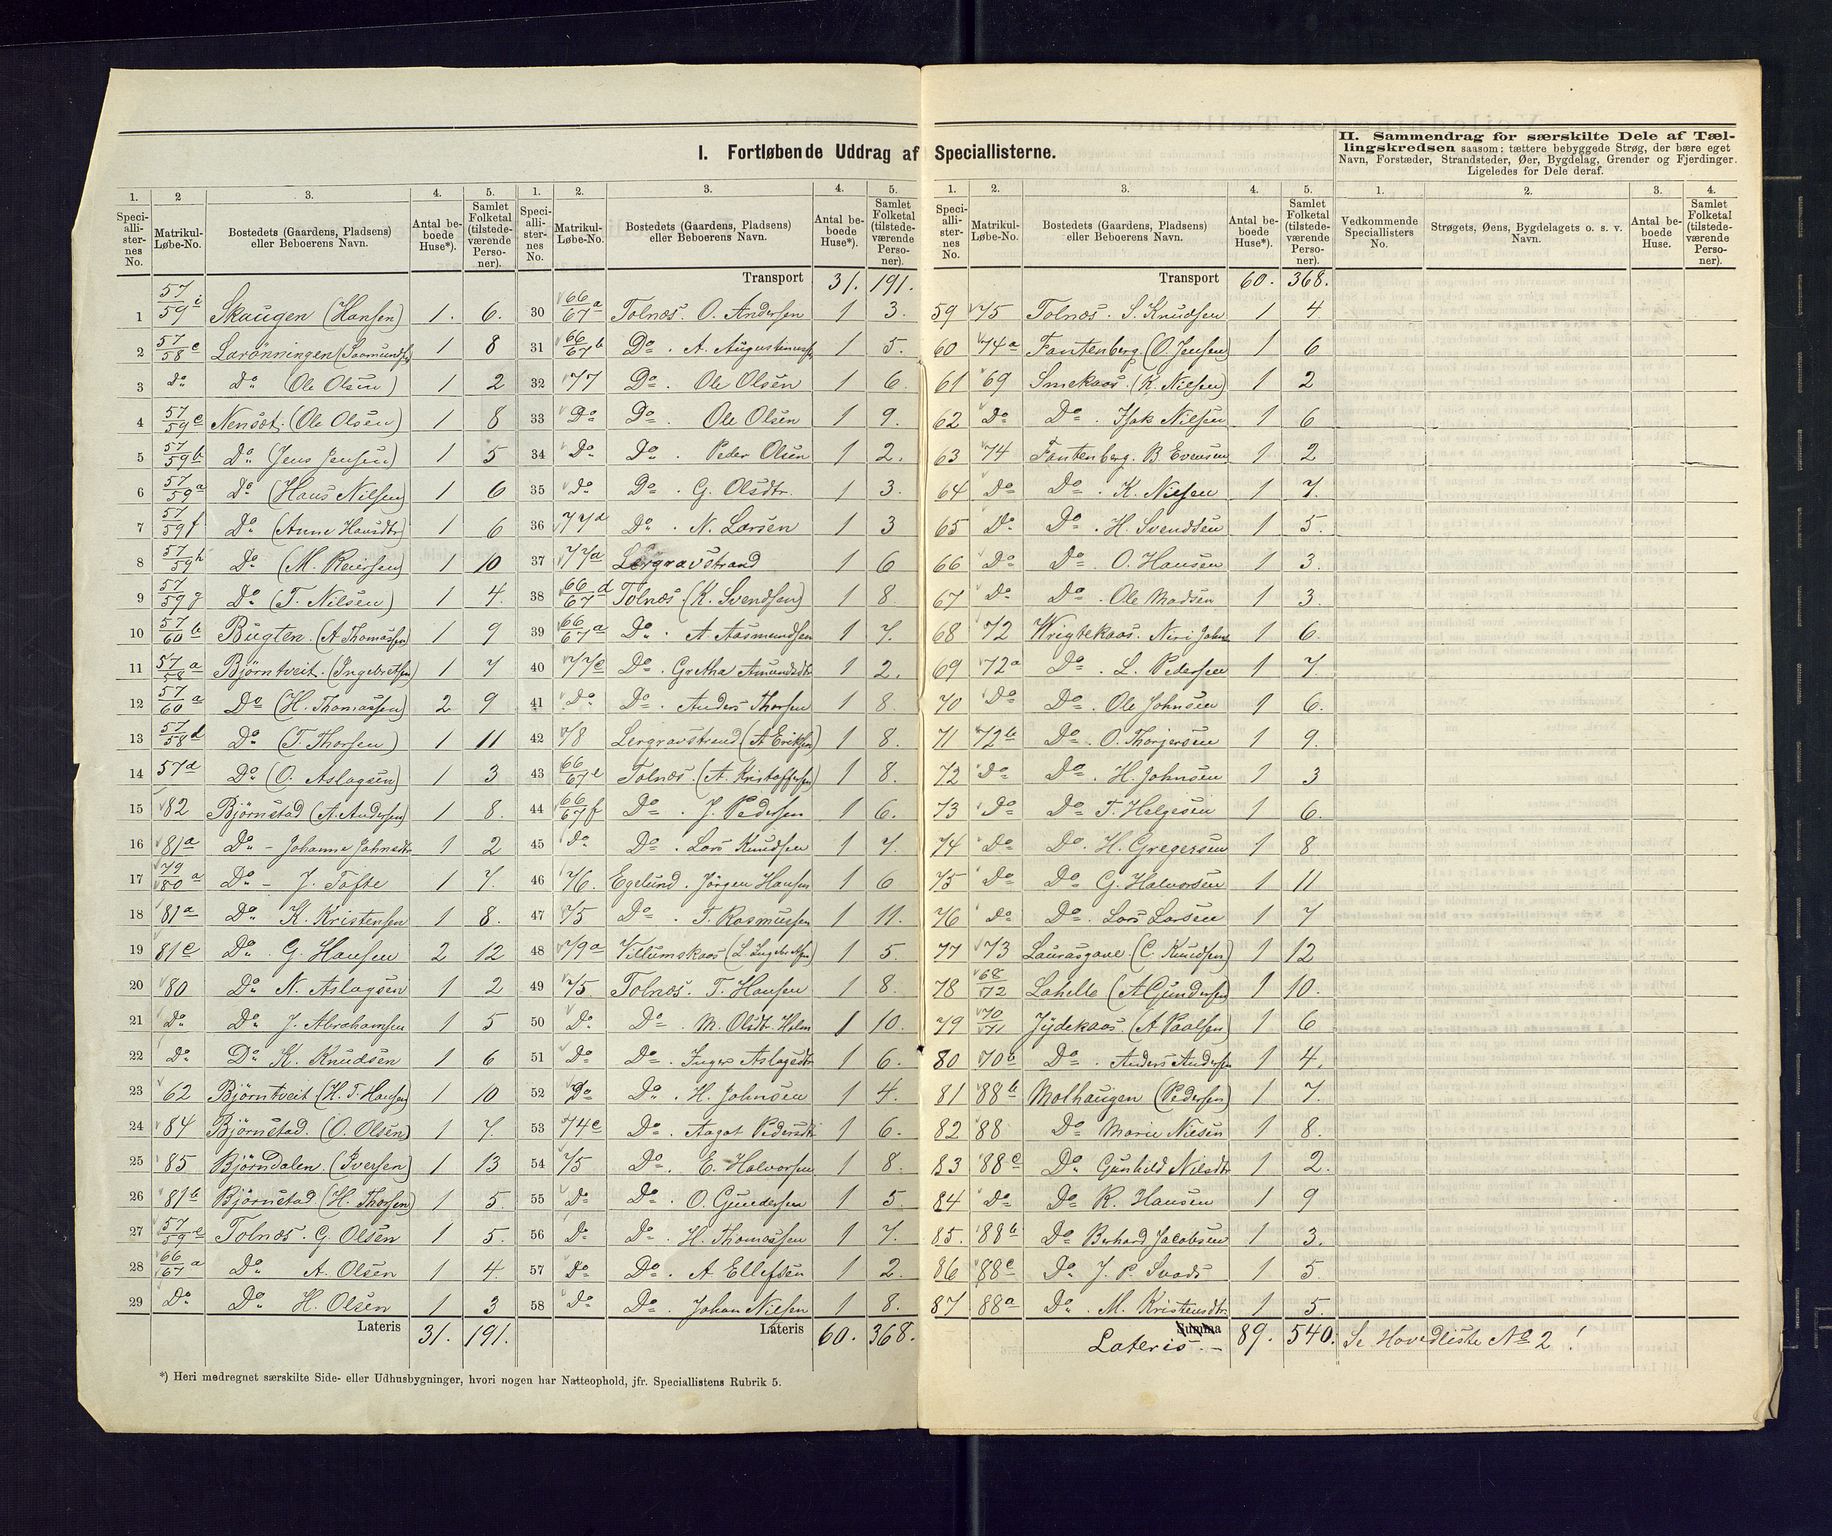 I. Fortløbende Uddrag af Speciallisterne.
II. Sammendrag for særskilte Dele af Tællingskredsen saasom: tættere bebyggede Strøg, der bære eget Navn, Forstæder, Strandsteder, Øer, Bygdelag, Grender og Fjerdinger. Ligeledes for Dele deraf.
1. 2 3. 4. 5. 1. 2. 3. 4. 5.
Speciallisternes No. Matrikul-Løbe-No. Bostedets (Gaardens, Pladsens) eller Beboerens Navn. Antal beboede Huse*). Samlet Folketal (tilstedeværende Personer). Speciallisternes No. Matrikul-Løbe-No. Bostedets (Gaardens, Pladsens) eller Beboerens Navn. Antal beboede Huse*). Samlet Folketal (tilstedeværende Personer).
Transport 31. 191.
1 57/59 i Skaugen (Hansen) 1. 6.
2 57/58 c Larønningen (Saamundsen) 1 8
3 Do Do (Ole Olsen) 1 2
4 57/59 c Nensæt. (Ole Olsen) 1 8
5 57/59 b Do (Jens Jensen) 1 5
6 57/59 a Do (Hans Nilsen) 1 6
7 57/59 f Do (Anne Hansdtr) 1 6
8 57/59 h Do (M. Reiersen) 1 10
9 57/59 g Do (T. Nilsen) 1 4.
10 57/60 b Bugten. (A Thomassen) 1 9
11 57/58 a Bjørntveit. (Ingebretsen) 1 7
12 57/60 a Do (H. Thomassen) 2 9
13 57/58 d Do (T. Thorsen) 1 11
14 57 d Do (O. Aslagsen) 1 3
15 82 Bjørnstad (A. Andersen) 1 8.
16 81a Do - Johanne Johnsdtr 1 2
17 79/80 a Do - J. Tofte 1 7.
18 81a Do K. Kristensen 1 8.
19 81c Do . G. Hansen 2 12
20 80 Do N. Aslagsen 1 2
21 Do Do J. Abrahamsen 1 5
22 Do Do K. Knudsen 1 6
23 62 Bjørntveit (H. T. Hansen) 1 10
24 84 Bjørnstad. (O. Olsen) 1 7.
25 85 Bjørndalen. (Iversen) 1 13
26 81b Bjørnstad (H. Thorsen) 1 5.
27 57/59 e Tolnæs. G. Olsen 1 5.
28 66/67 a Do A. Olsen 1 4
29 Do Do H. Olsen 1 3
Lateris 31. 191.
30 66/67 a Tolnæs. O. Andersen 1 3.
31 66/67 b Do . A. Augustinussen 1 5.
32 77 Do . Ole Olsen 1 6.
33 Do Do . Ole Olsen 1 9.
34 Do Do . Peder Olsen 1 2.
35 Do Do . G. Olsdtr. 1 3.
36 77d Do . N. Larsen 1 3
37 77a Lergravstrand 1 6
38 66/67 d Tolnæs. (K. Svendsen) 1 8
39 66/67 a Do . A Aasmundsen 1 7.
40 77c Do . Grethe Amundsdtr 1 2.
41 Do Do . Anders Thorsen 1 8.
42 78 Lergravstrand (A Eriksen) 1 8.
43 66/67 e Tolnæs. (A. Kristoffersen) 1 8.
44 66/67 f Do . J. Pedersen 1 6.
45 Do Do . Lars Knudsen 1 7.
46 76. Egelund. Jørgen Hansen 1 6
47 75 Do . T. Rasmussen 1 11.
48 79a Villumskaas (L. Ingebretsen) 1 5.
49 75. Tolnæs. T. Hansen 1 8.
50 Do Do . M. Olsdtr. Holm 1 10.
51 Do Do . Inger Aslagsdtr 1 6.
52 Do Do . H. Johnsen 1 4.
53 74c Do . Aagot Pedersdtr 1 6.
54 75 Do . E. Halvorsen 1 8.
55 Do Do . O. Gundersen 1 5.
56 Do Do . H. Thomassen 1 7.
57 Do Do . A Ellefsen 1 2.
58 Do Do . Johan Nilsen 1 8.
Lateris 60. 368.
*) Heri medregnet særskilte Side- eller Udhusbygninger, hvori nogen har Natteophold, jfr. Speciallistens Rubrik 5.
1. 2. 3. 4. 5. 1. 2. 3. 4.
Speciallisternes No. Matrikul-Løbe-No. Bostedets (Gaardens, Pladsens) eller Beboerens Navn. Antal beboede Huse*). Samlet Folketal (tilstedeværende Personer). Vedkommende Speciallisters No. Strøgets, Øens, Bygdelagets o. s. v. Navn. Antal beboede Huse. Samlet Folketal (tilstedeværende Personer).
Transport 60. 368.
59 75 Tolnæs. S. Knudsen 1 4
60 74a Fantenberg. (O. Jensen) 1 6
61 69 Smekaas. (K. Nilsen) 1 2
62 Do Do . Isak Nilsen 1 6
63 74 Fantenberg. B. Evensen 1 2
64 Do Do . K. Nilsen 1 7.
65 Do Do . H. Svendsen 1 5.
66 Do Do . O. Hansen 1 3.
67 Do Do . Ole Madsen 1 3.
68 72 Wrigtekaas. Neri Johns 1 6.
69 72a Do . L. Pedersen 1 7.
70 Do Do . Ole Johnsen 1 6.
71 72b Do . O. Thorjersen 1 9.
72 Do Do . H. Johnsen 1 3
73 Do Do . T. Helgesen 1 6.
74 Do Do . H. Gregersen 1 8
75 Do Do G. Halvorsen 1 11
76 Do Do . Lars Larsen 1 7
77 73 Laurasgave. (C. Knudsen) 1 12
78 68/72 Lahelle (A Gundersen) 1 10.
79 70/71 Jydekaas. (A. Paalsen) 1 6
80 70b Do . Anders Andersen 1 4.
81 88b Molhaugen (Pedersen) 1 7.
82 88 Do Marie Nilsen 1 8.
83 88c Do Gunhild Nilsdtr 1 2.
84 Do Do R. Hansen 1 9
85. 88b Do Berhard Jacobsen 1 3.
86 88c Do J. P. Svads 1 5.
87 88a Do . M. Kristensdtr. 1 5.
Summa Lateris. 89. 540. Se Hovedliste No 2!